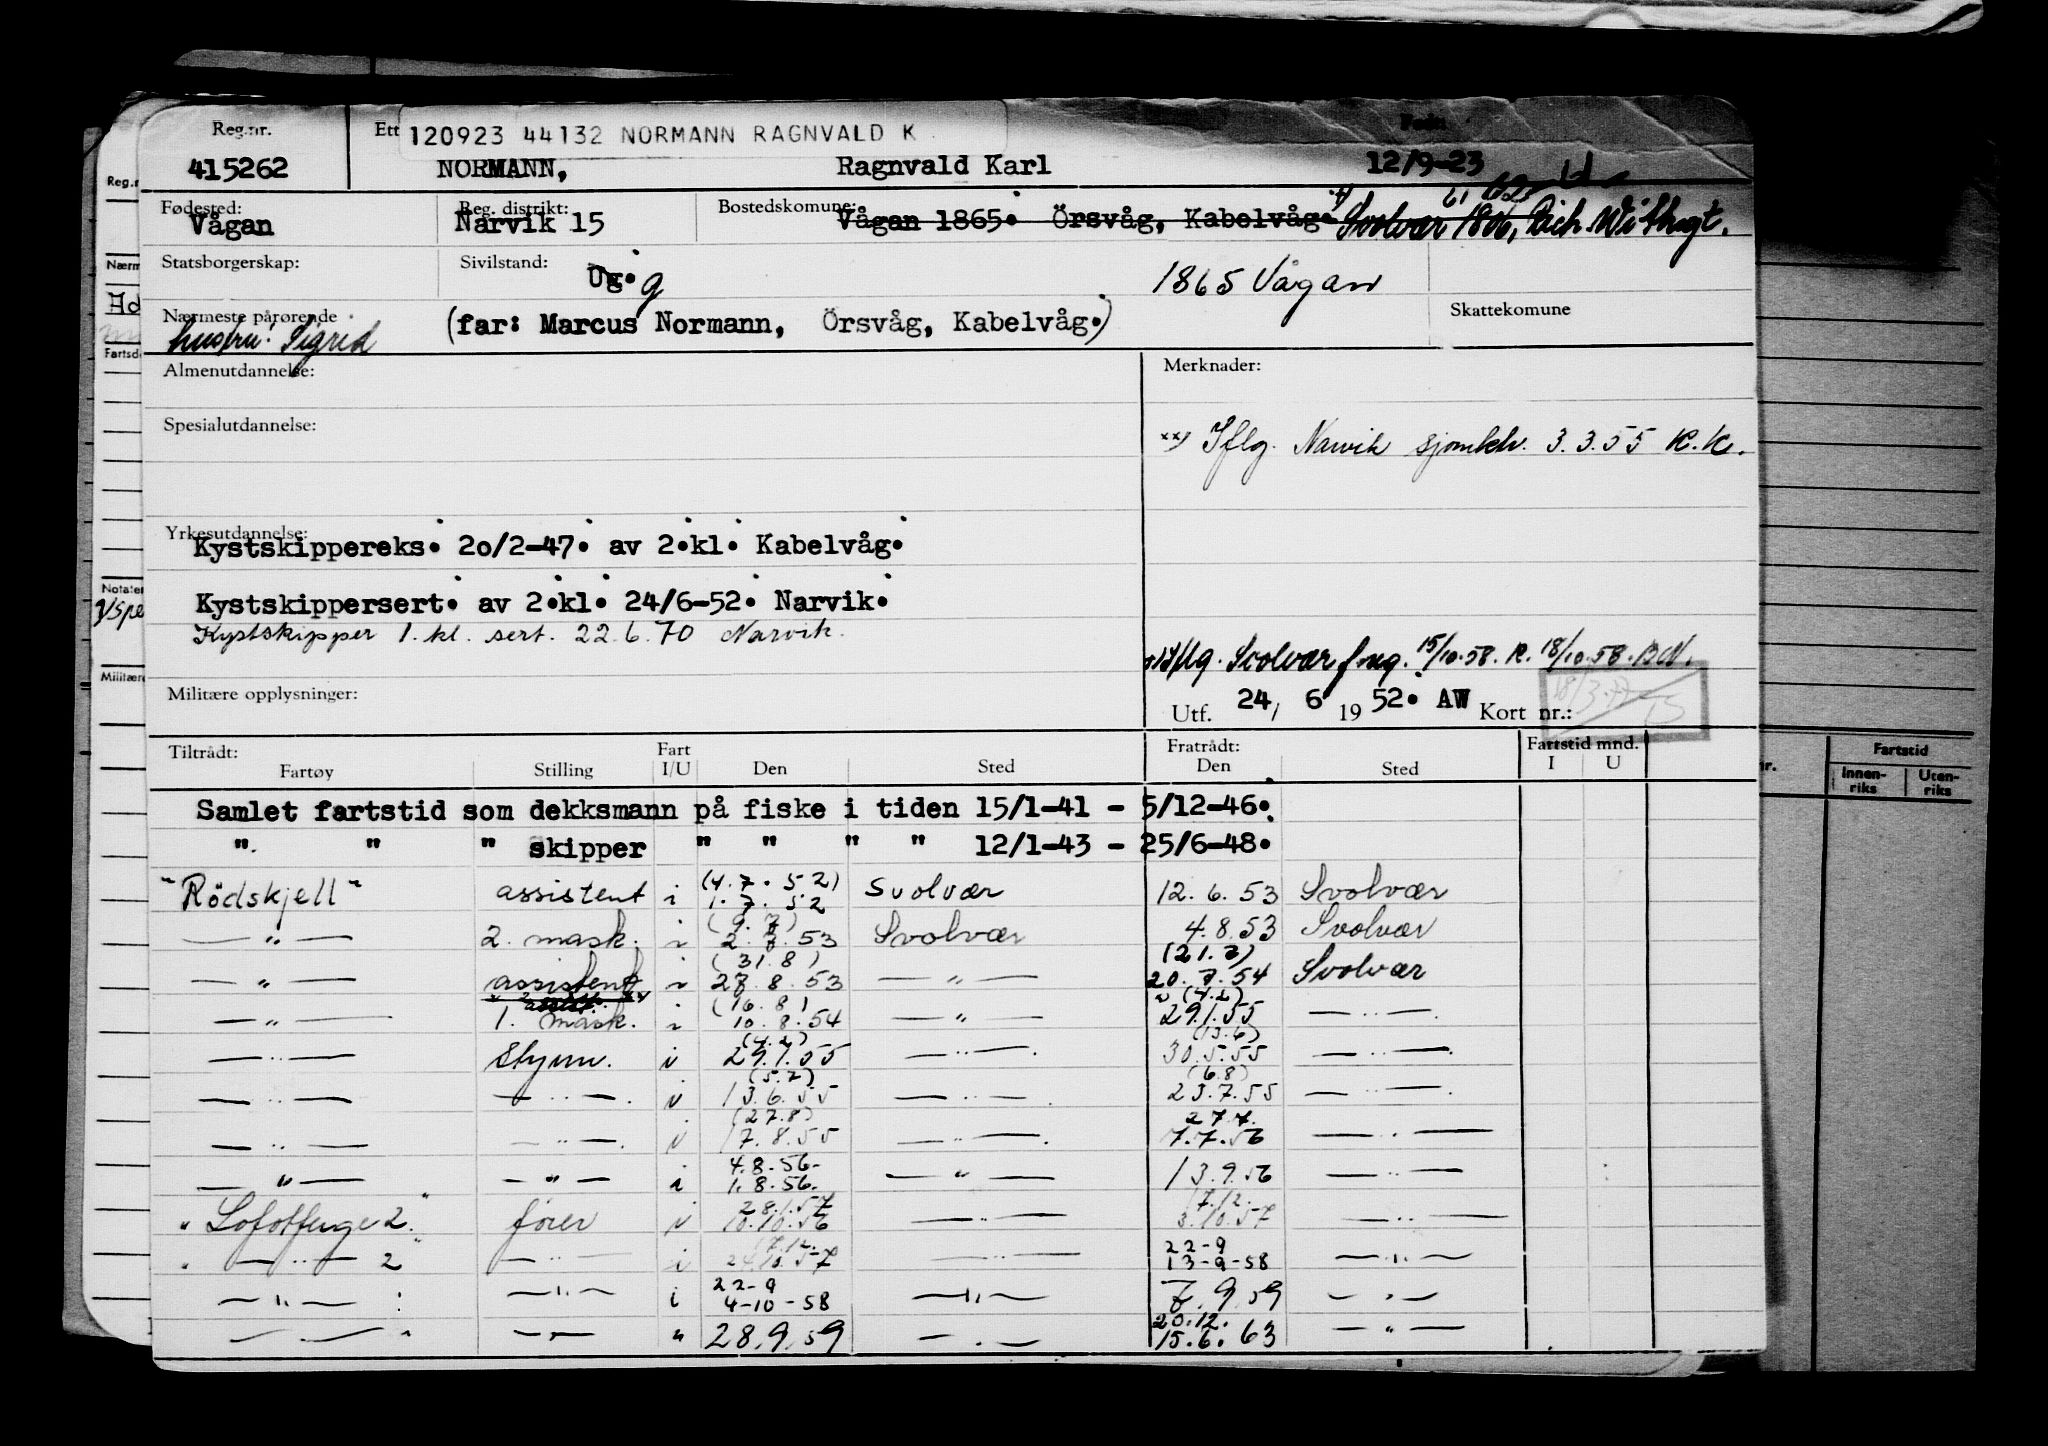 Reg.nr. Ett 120923 44132 NORMANN RAGNVALD K
415262 NORMANN, Ragnvald Karl 12/9-23
Fødested: Reg. distrikt: Bostedskomune:
Vågan Narvik 15 Vågan 1865. Örsvåg, Kabelvåg. Svolvær
Statsborgerskap: Sivilstand: Ug. g 1865 Vågan
Nærmeste pårørende (far: Marcus Normann, Örsvåg, Kabelvåg.) Skattekomune
hustru: Sigrid
Almenutdannelse: Merknader:
Spesialutdannelse: xx) Iflg. Narvik sjømktr. 3.3.55 K.K.
Yrkesutdannelse:
Kystskippereks. 2o/2-47. av 2.kl. Kabelvåg.
Kystskippersert. av 2.kl. 24/6-52. Narvik.
Kystskipper 1. kl. sert. 22.6.70 Narvik.
Iflg. Svolvær 15/10.58. R. 18/10.58.
Militære opplysninger: Utf. 24, 6 19 52. AW Kort nr.:
Tiltrådt: Fart Fratrådt: Fartstid mnd.
Fartøy Stilling I/U Den Sted Den Sted I U
Samlet fartstid som dekksmann på fiske i tiden 15/1-41 - 5/12-46.
" " " skipper " " " " 12/1-43 - 25/6-48.
"Rödskjell" assistent i (4.7.52) 1.7.52 Svolvær 12.6.53 Svolvær
— " — 2. mask. i (9.7) 2.7.53 Svolvær 4.8.53 Svolvær
— " — assistent i (31.8) 27.8.53 — " — (21.7) 20.7.54 Svolvær
— " — 1. mask. i (16.8) 10.8.54 — " — (4.2) 29.1.55 — " —
— " — Styrm. i (4.2) 29.1.55 — " — (13.6) 30.5.55 — " —
— " — — " — i (5.7) 13.6.55 — " — (6.8) 23.7.55 — " —
— " — — " — i (27.8) 17.8.55 — " — 27.7. 7.7.56 — " —
— " — — " — i 4.8.56- 1.8.56. — " — 13.9.56 — " —
" Lofotferge 2." fører i 28.1.57 10.10.56 — " — 17.12. 3.10.57 — " —
" — " — 2" — " — i 17.12. 24.10.57 — " — 22-9 13-9-58 — " —
— " — — " — i 22-9 4-10-58 — " — 7.9.59 — " —
— " — — " — " 28.9.59 — " — 20.12. 15.6.63 — " —
Fartstid
Innen-riks Uten-riks